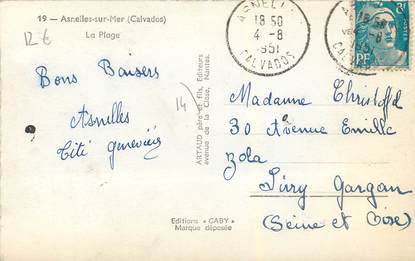 19 - Asnelles-sur-Mer (Calvados)
La Plage
12 €
Bons Baisers
Asnelles
Titi Geneviève
14
ARTAUD père et fils, Editeurs
avenue de la Close, Nantes.
Editions « GABY »
Marque déposée
ASNELL
18 50
4 - 8
1951
CALVADOS
18
8
CALVADOS
RF
Madame Christofol
30 Avenue Emile
Zola
Livry Gargan
(Seine et Oise)